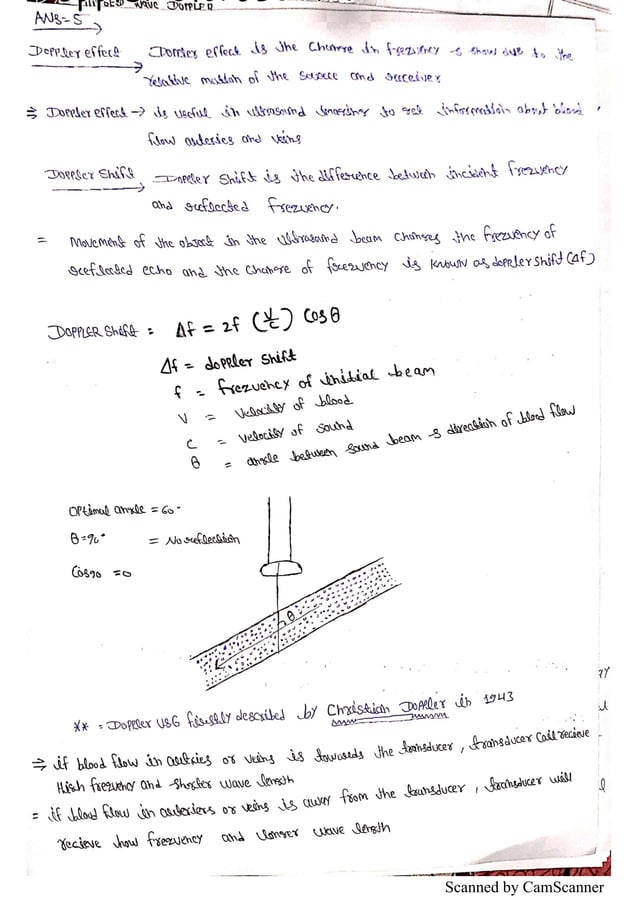 WAVE DOPPLER
ANS-5
Doppler effect → Doppler effect is the Change in frequency is show due to the
relative motion of the source and reciever
⇒ Doppler effect → is useful in ultrasound to get information about blood
flow arteries and veins
Doppler Shift → Doppler Shift is the difference between incident frequency
and reflected frequency.
= Movement of the object in the Ultrasound beam Changes the frequency of
reflected echo and the Change of frequency is known as doppler shift (Δf)
DOPPLER Shift = Δf = 2f (V/C) Cos θ
Δf = doppler shift
f = frequency of initial beam
V = Velocity of blood
C = Velocity of sound
θ = angle between sound beam & direction of blood flow
Optimal angle = 60°
θ = 90° = No reflection
Cos90 = 0
θ
** = Doppler USG firstly described by Christian Doppler in 1943
⇒ if blood flow in or veins is towards the transducer, transducer recieve
High frequency and Shorter wave length
= if blood flow in or veins is away from the transducer, transducer will
recieve low frequency and longer wave length
Scanned by CamScanner